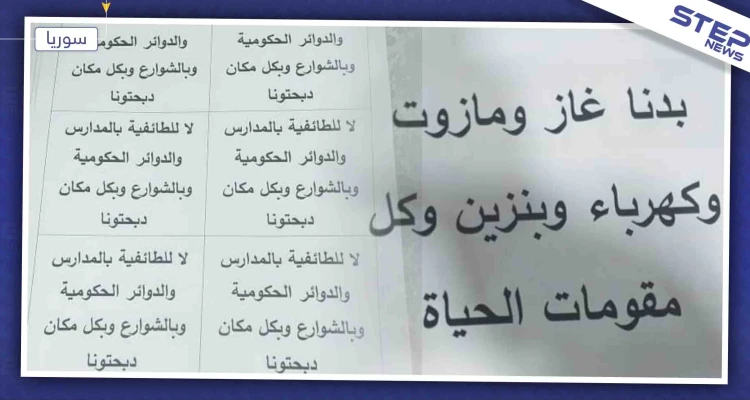 STEP
NEWS
سوريا
بدنا غاز ومازوت
وكهرباء وبنزين وكل
مقومات الحياة
والدوائر الحكومية
وبالشوارع وبكل مكان
دبحتونا
والدوائر الحكومية
وبالشوارع وبكل مكان
دبحتونا
لا للطائفية بالمدارس
والدوائر الحكومية
وبالشوارع وبكل مكان
دبحتونا
لا للطائفية بالمدارس
والدوائر الحكومية
وبالشوارع وبكل مكان
دبحتونا
لا للطائفية بالمدارس
والدوائر الحكومية
وبالشوارع وبكل مكان
دبحتونا
لا للطائفية بالمدارس
والدوائر الحكومية
وبالشوارع وبكل مكان
دبحتونا